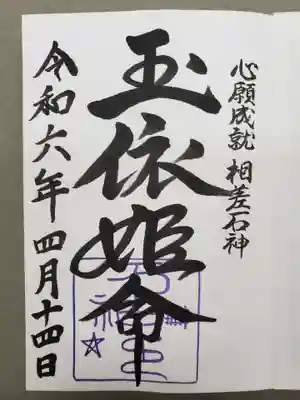 心願成就 相差石神
玉依姫命
令和六年 四月十四日